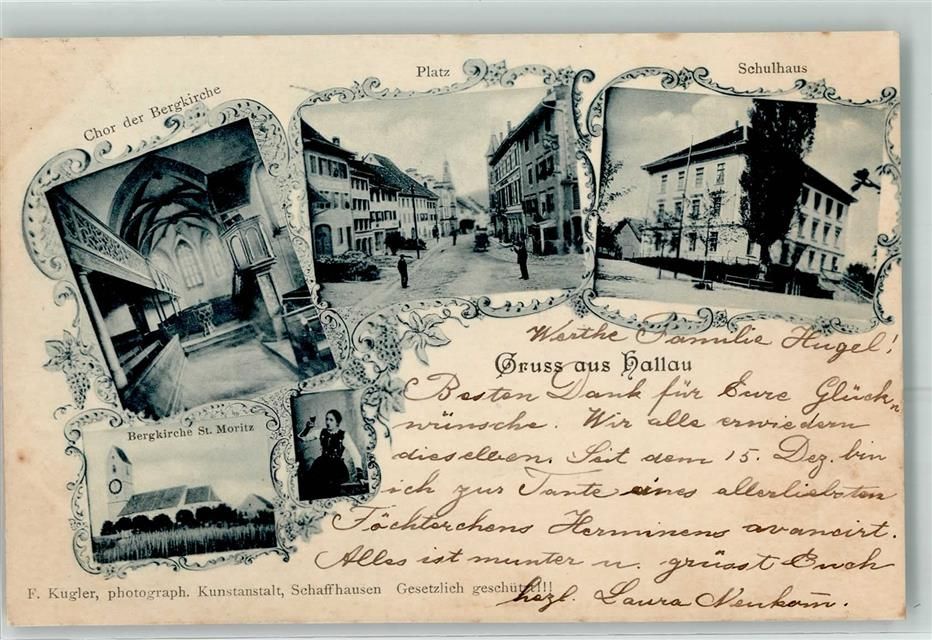 Chor der Bergkirche
Platz
Schulhaus
Bergkirche St. Moritz
Gruss aus Hallau
Werthe Familie Hugel!
Besten Dank für Eure Glück-
wünsche. Wir alle erwiedern
dieselben. Seit dem 15. Dez. bin
ich zur Tante eines allerliebsten
Töchterchens Herminens avancirt.
Alles ist munter u. grüsst Euch
hzl. Laura Neukom̄.
F. Kugler, photograph. Kunstanstalt, Schaffhausen Gesetzlich geschützt!!!